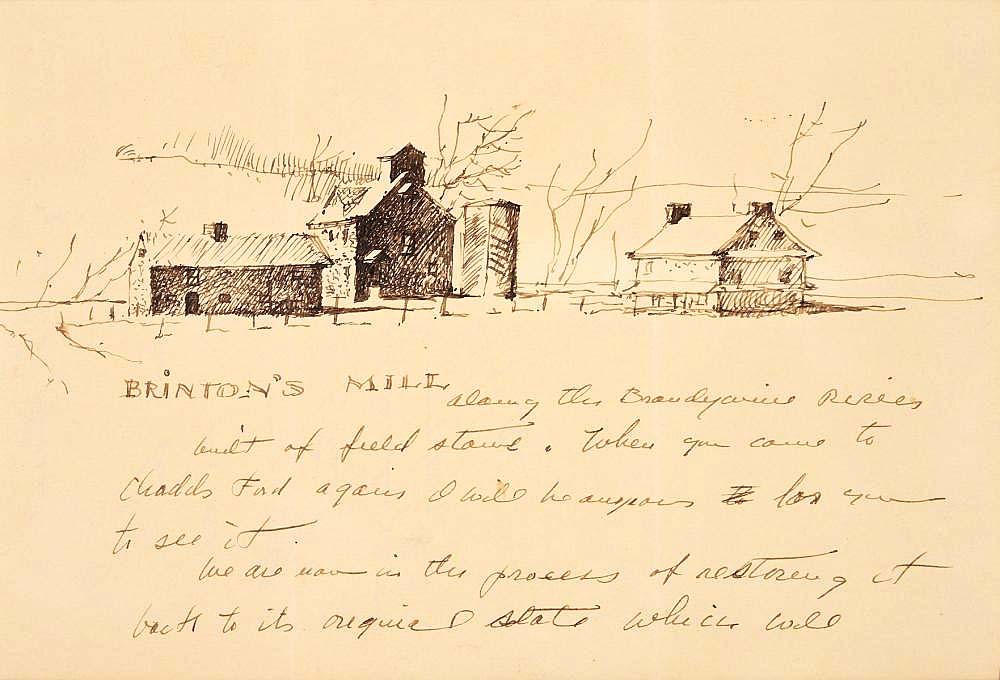 BRINTON'S MILL along the Brandywine River
built of field stone. When you come to
Chadds Ford again I will be anxious for you
to see it.
We are now in the process of restoring it
back to its original state which will